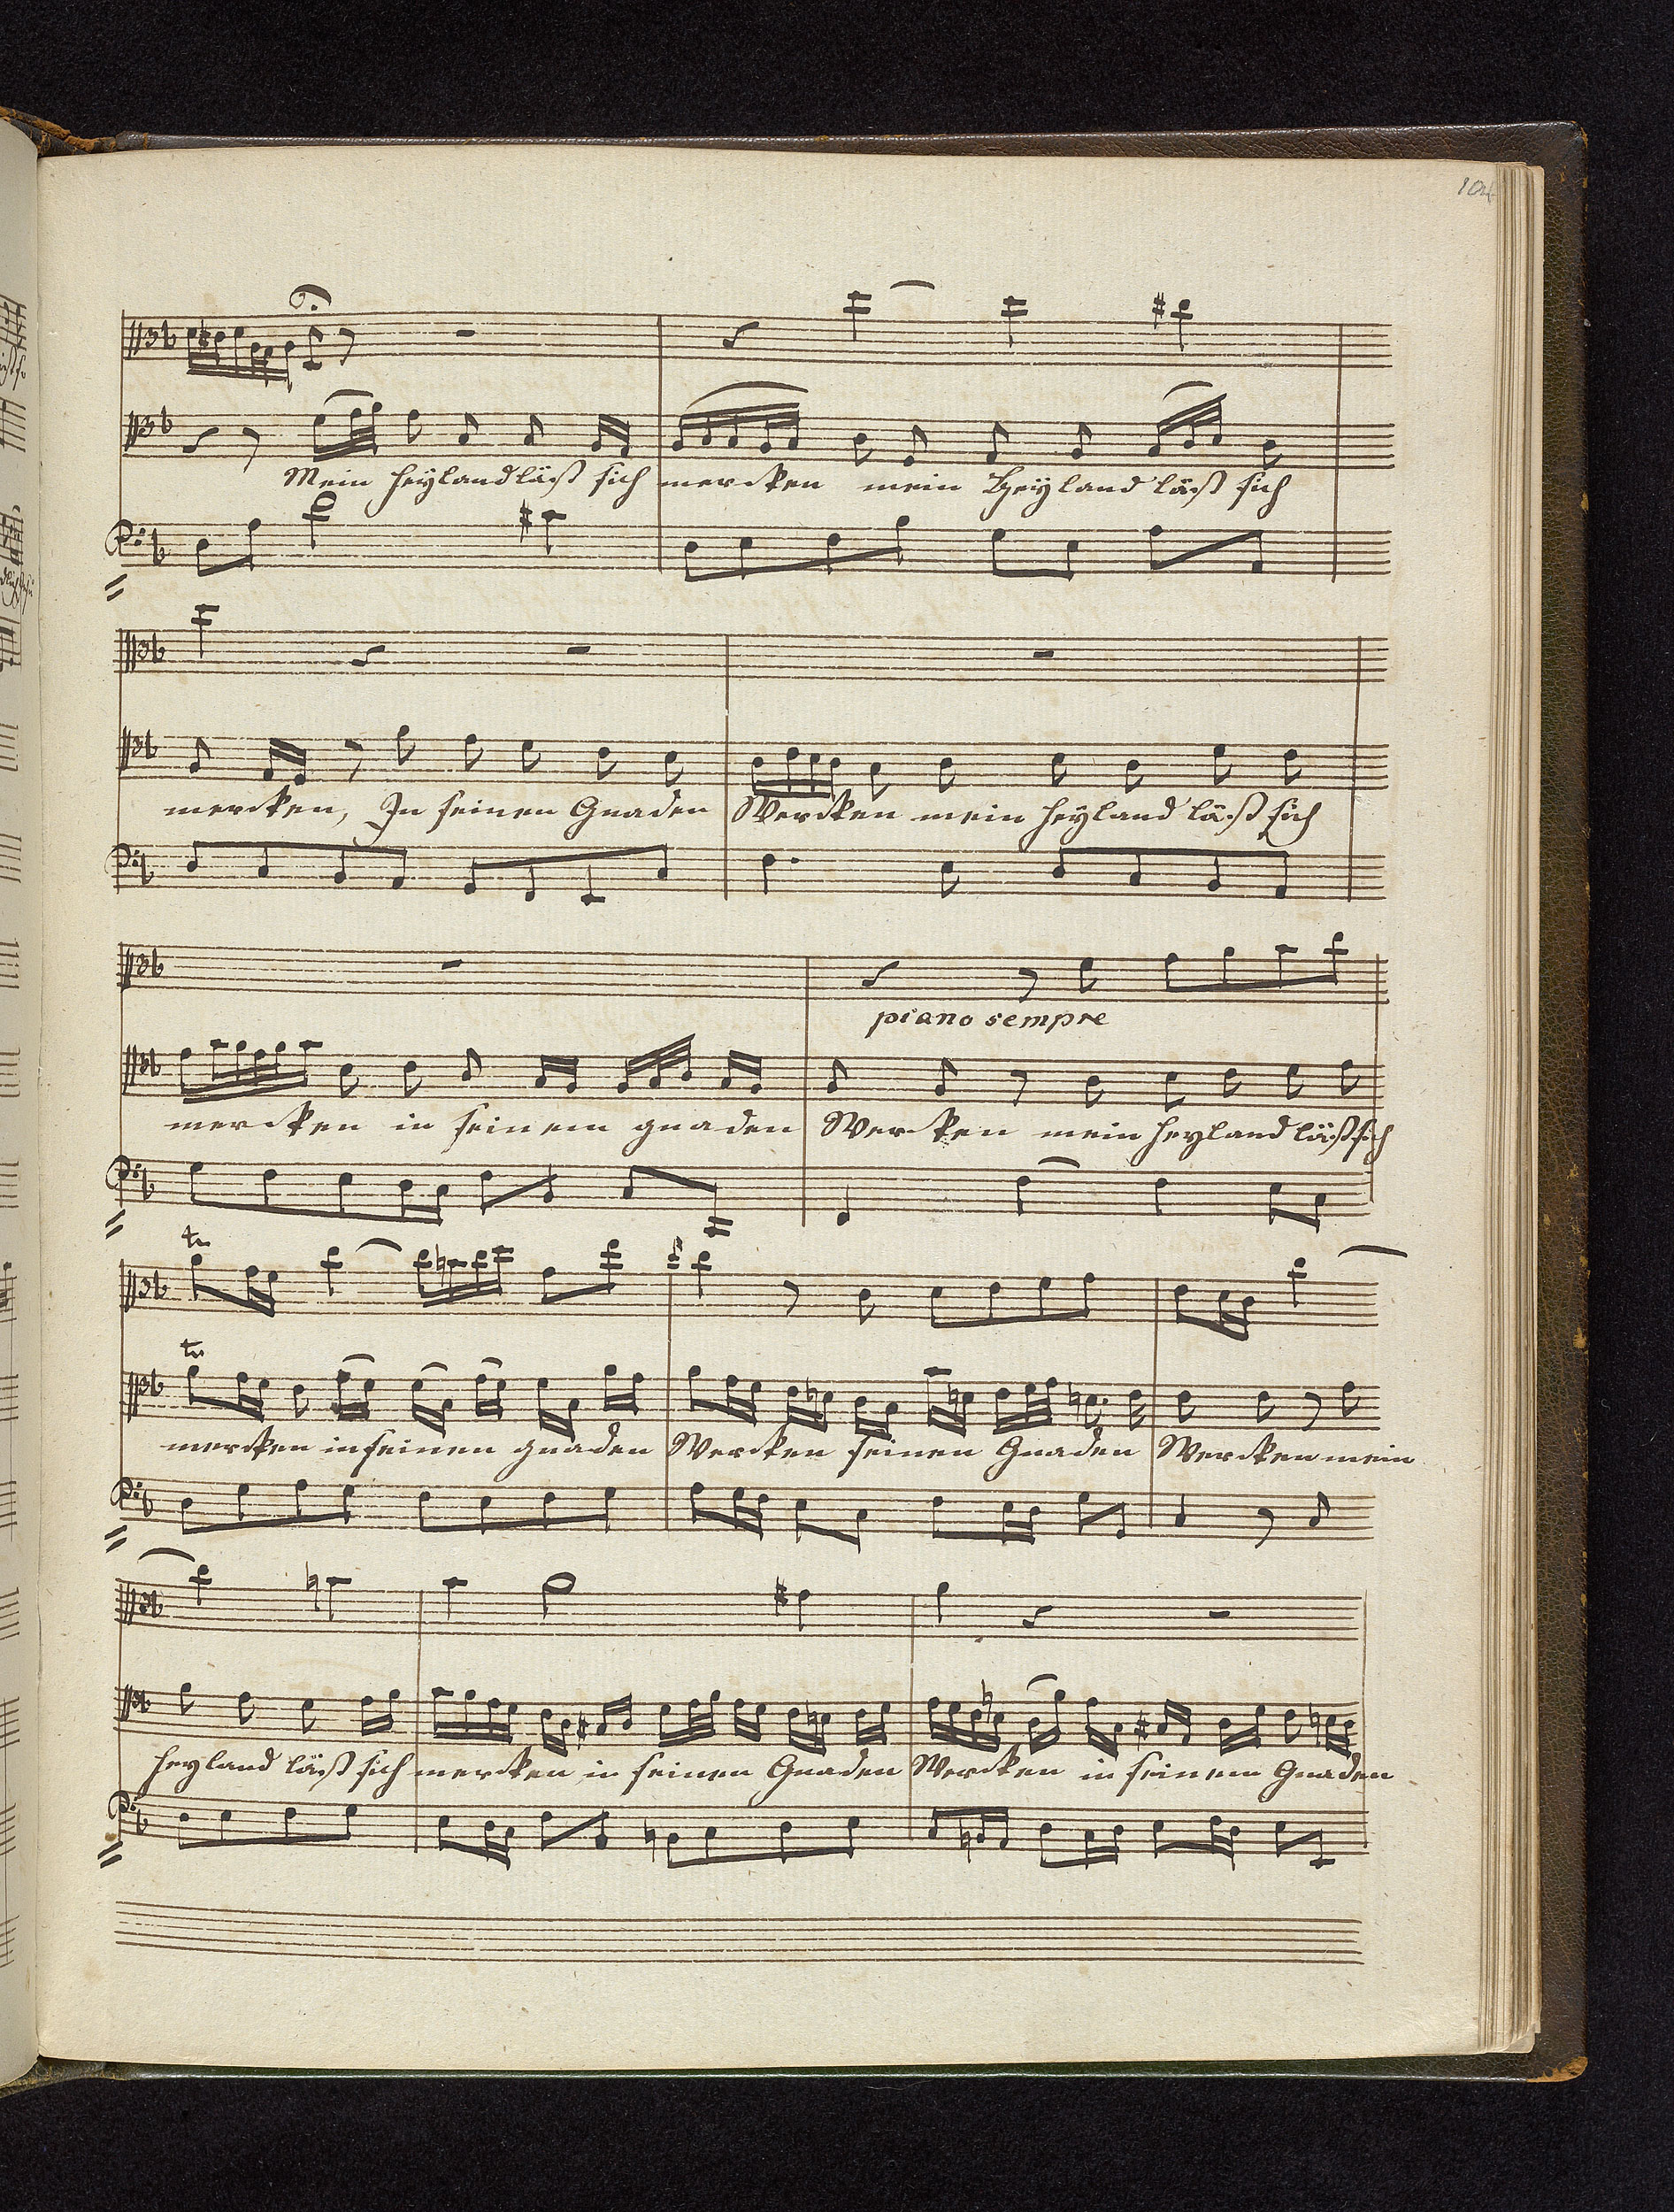 104
Mein heyland läßt sich mercken mein Heyland läßt sich
mercken, In seinen Gnaden Wercken mein heyland läßt sich
piano sempre
mercken in seinem gnaden Wercken mein heyland läßt sich
tr
tr
mercken in seinen gnaden Wercken seinen Gnaden Wercken mein
heyland läßt sich mercken in seinen Gnaden Wercken in seinem Gnaden